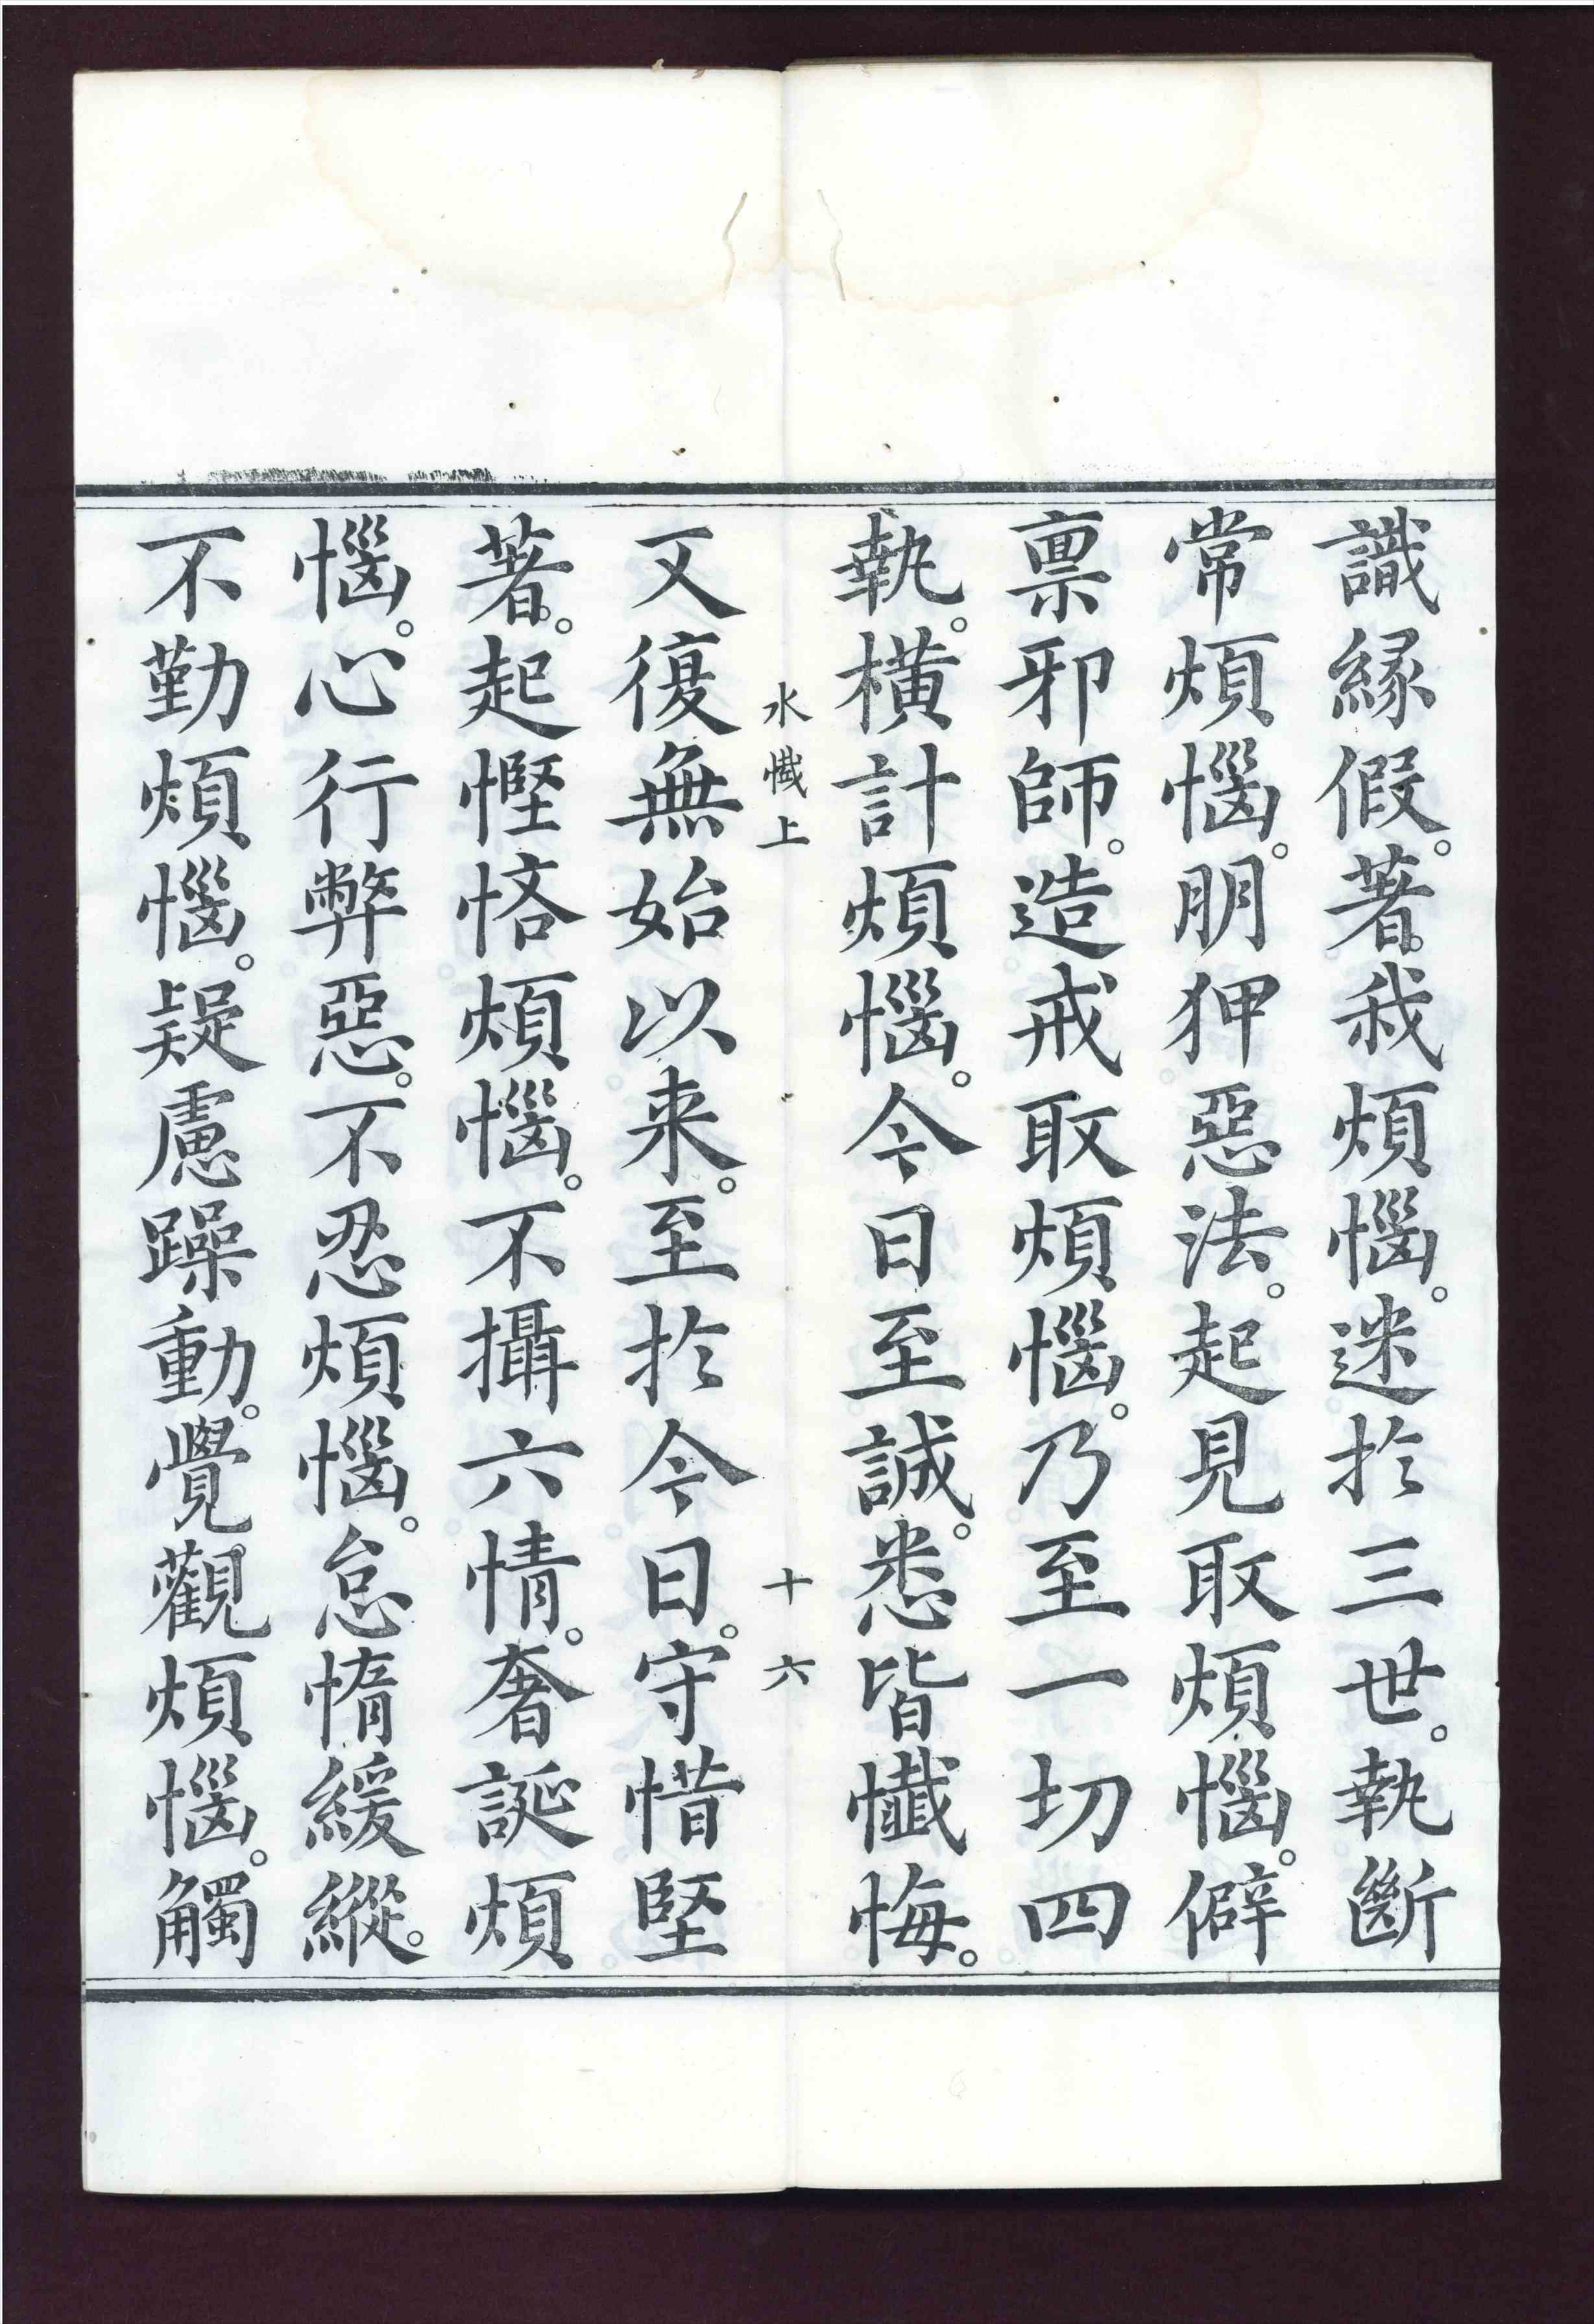 識緣假。著我煩惱。迷於三世。執斷
常煩惱。朋狎惡法。起見取煩惱。僻
稟邪師。造戒取煩惱。乃至一切四
執。橫計煩惱。今日至誠。悉皆懺悔。
水懺上 十六
又復無始以来。至於今日。守惜堅
著。起慳悋煩惱。不攝六情。奢誕煩
惱。心行弊惡。不忍煩惱。怠惰緩縱。
不勤煩惱。疑慮躁動。覺觀煩惱。觸